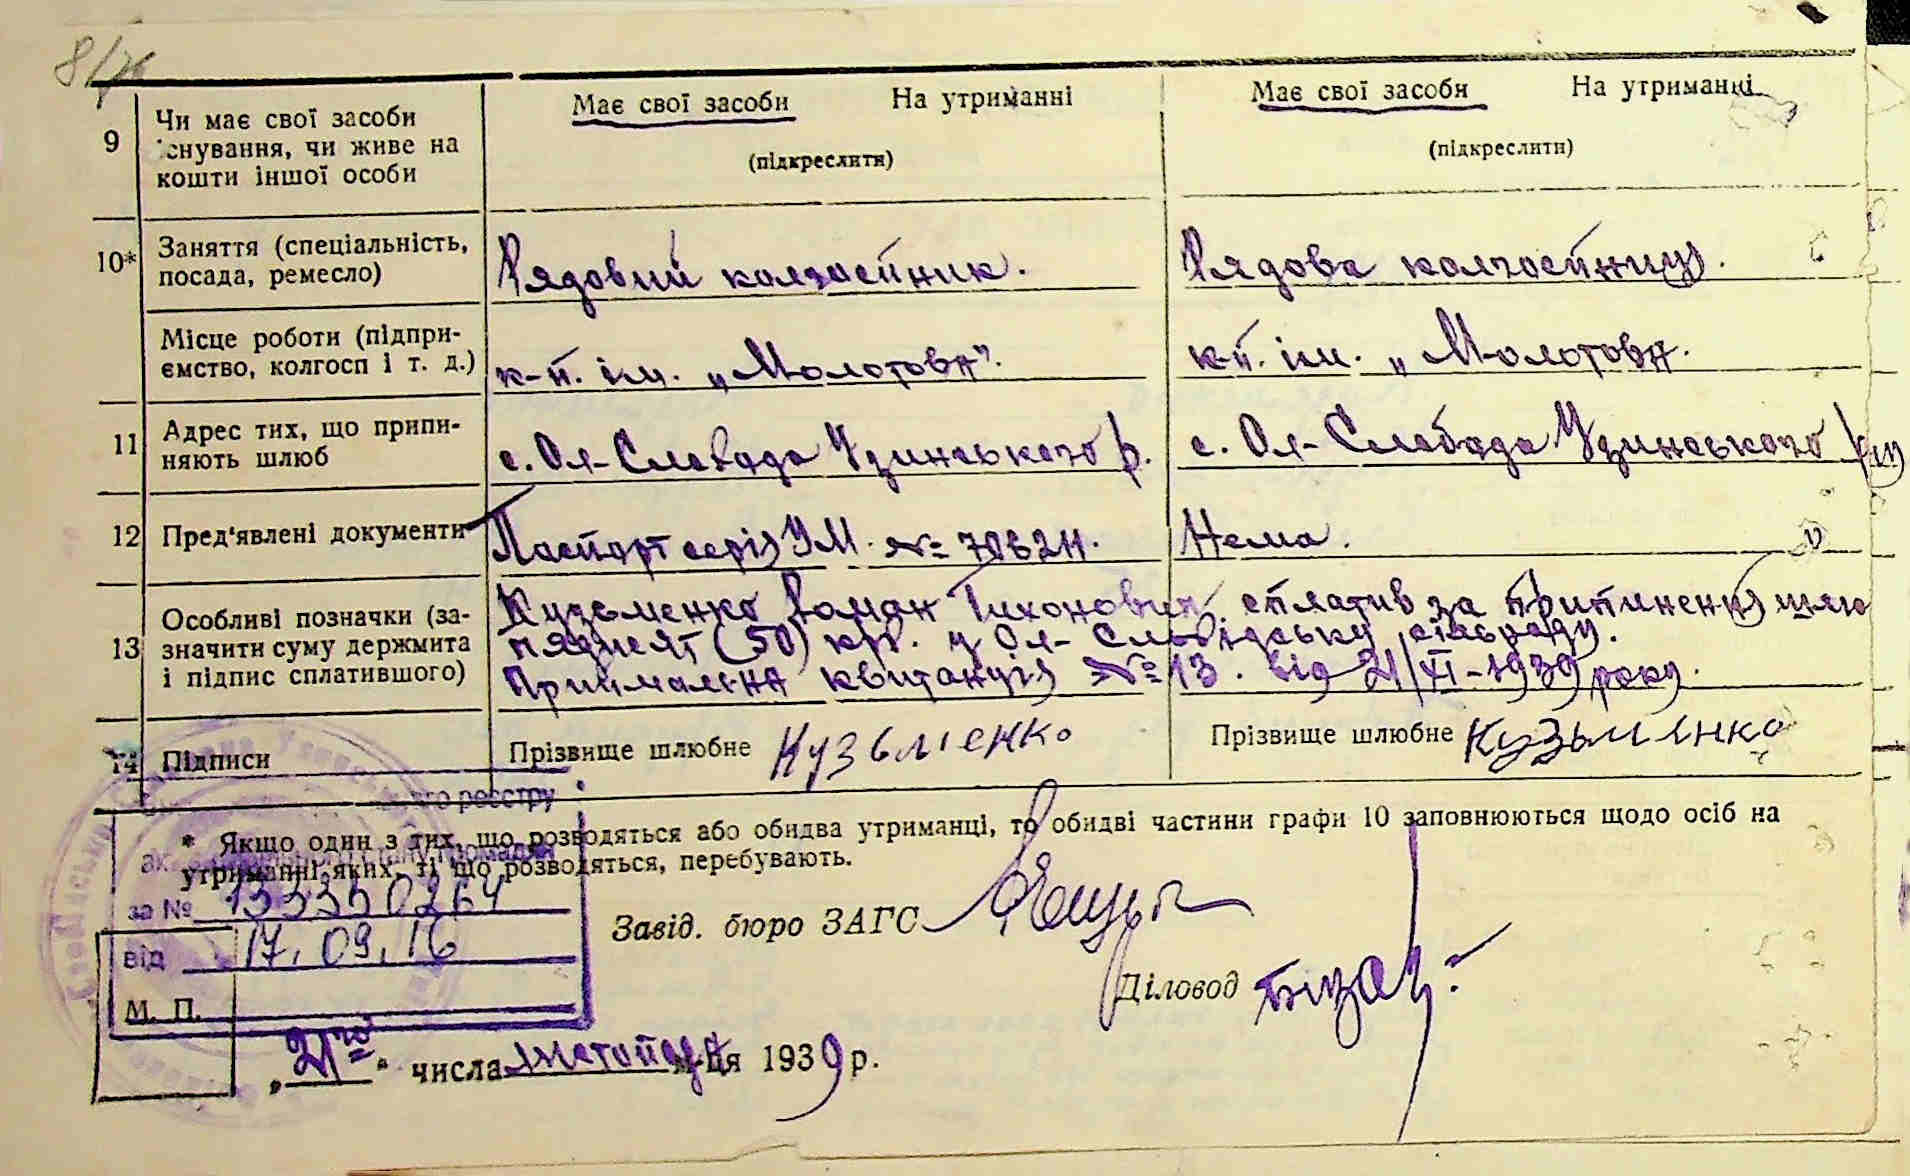 8/76
9 Чи має свої засоби існування, чи живе на кошти іншої особи
Має свої засоби На утриманні
(підкреслити)
Має свої засоби На утриманні
(підкреслити)
10* Заняття (спеціальність, посада, ремесло)
Рядовий колгоспник.
Рядова колгоспниця.
Місце роботи (підприємство, колгосп і т. д.)
к-п. ім. „Молотова".
к-п. ім. „Молотова.
11 Адрес тих, що припиняють шлюб
с. Ол-Слобода Узинського р.
с. Ол-Слобода Узинського р-ну
12 Пред'явлені документи
Паспорт серія УМ. №
Нема.
13 Особливі позначки (зазначити суму держмита і підпис сплатившого)
Кузьменко Роман Тихонович. сплатив за припинення шлю
пядисят (50) крб. у Ол-Слобідську сільраду.
Приймальна квитанція № 13. від 21/XI-1939 року.
14 Підписи
Прізвище шлюбне Кузьменко
Прізвище шлюбне Кузьменко
* Якщо один з тих, що розводяться або обидва утриманці, то обидві частини графи 10 заповнюються щодо осіб на
утриманні яких, ті що розводяться, перебувають.
реєстру
за № 133350264
від 17.09.16
М. П.
Завід. бюро ЗАГС
Діловод
„21го" числа листопада м-ця 1939 р.